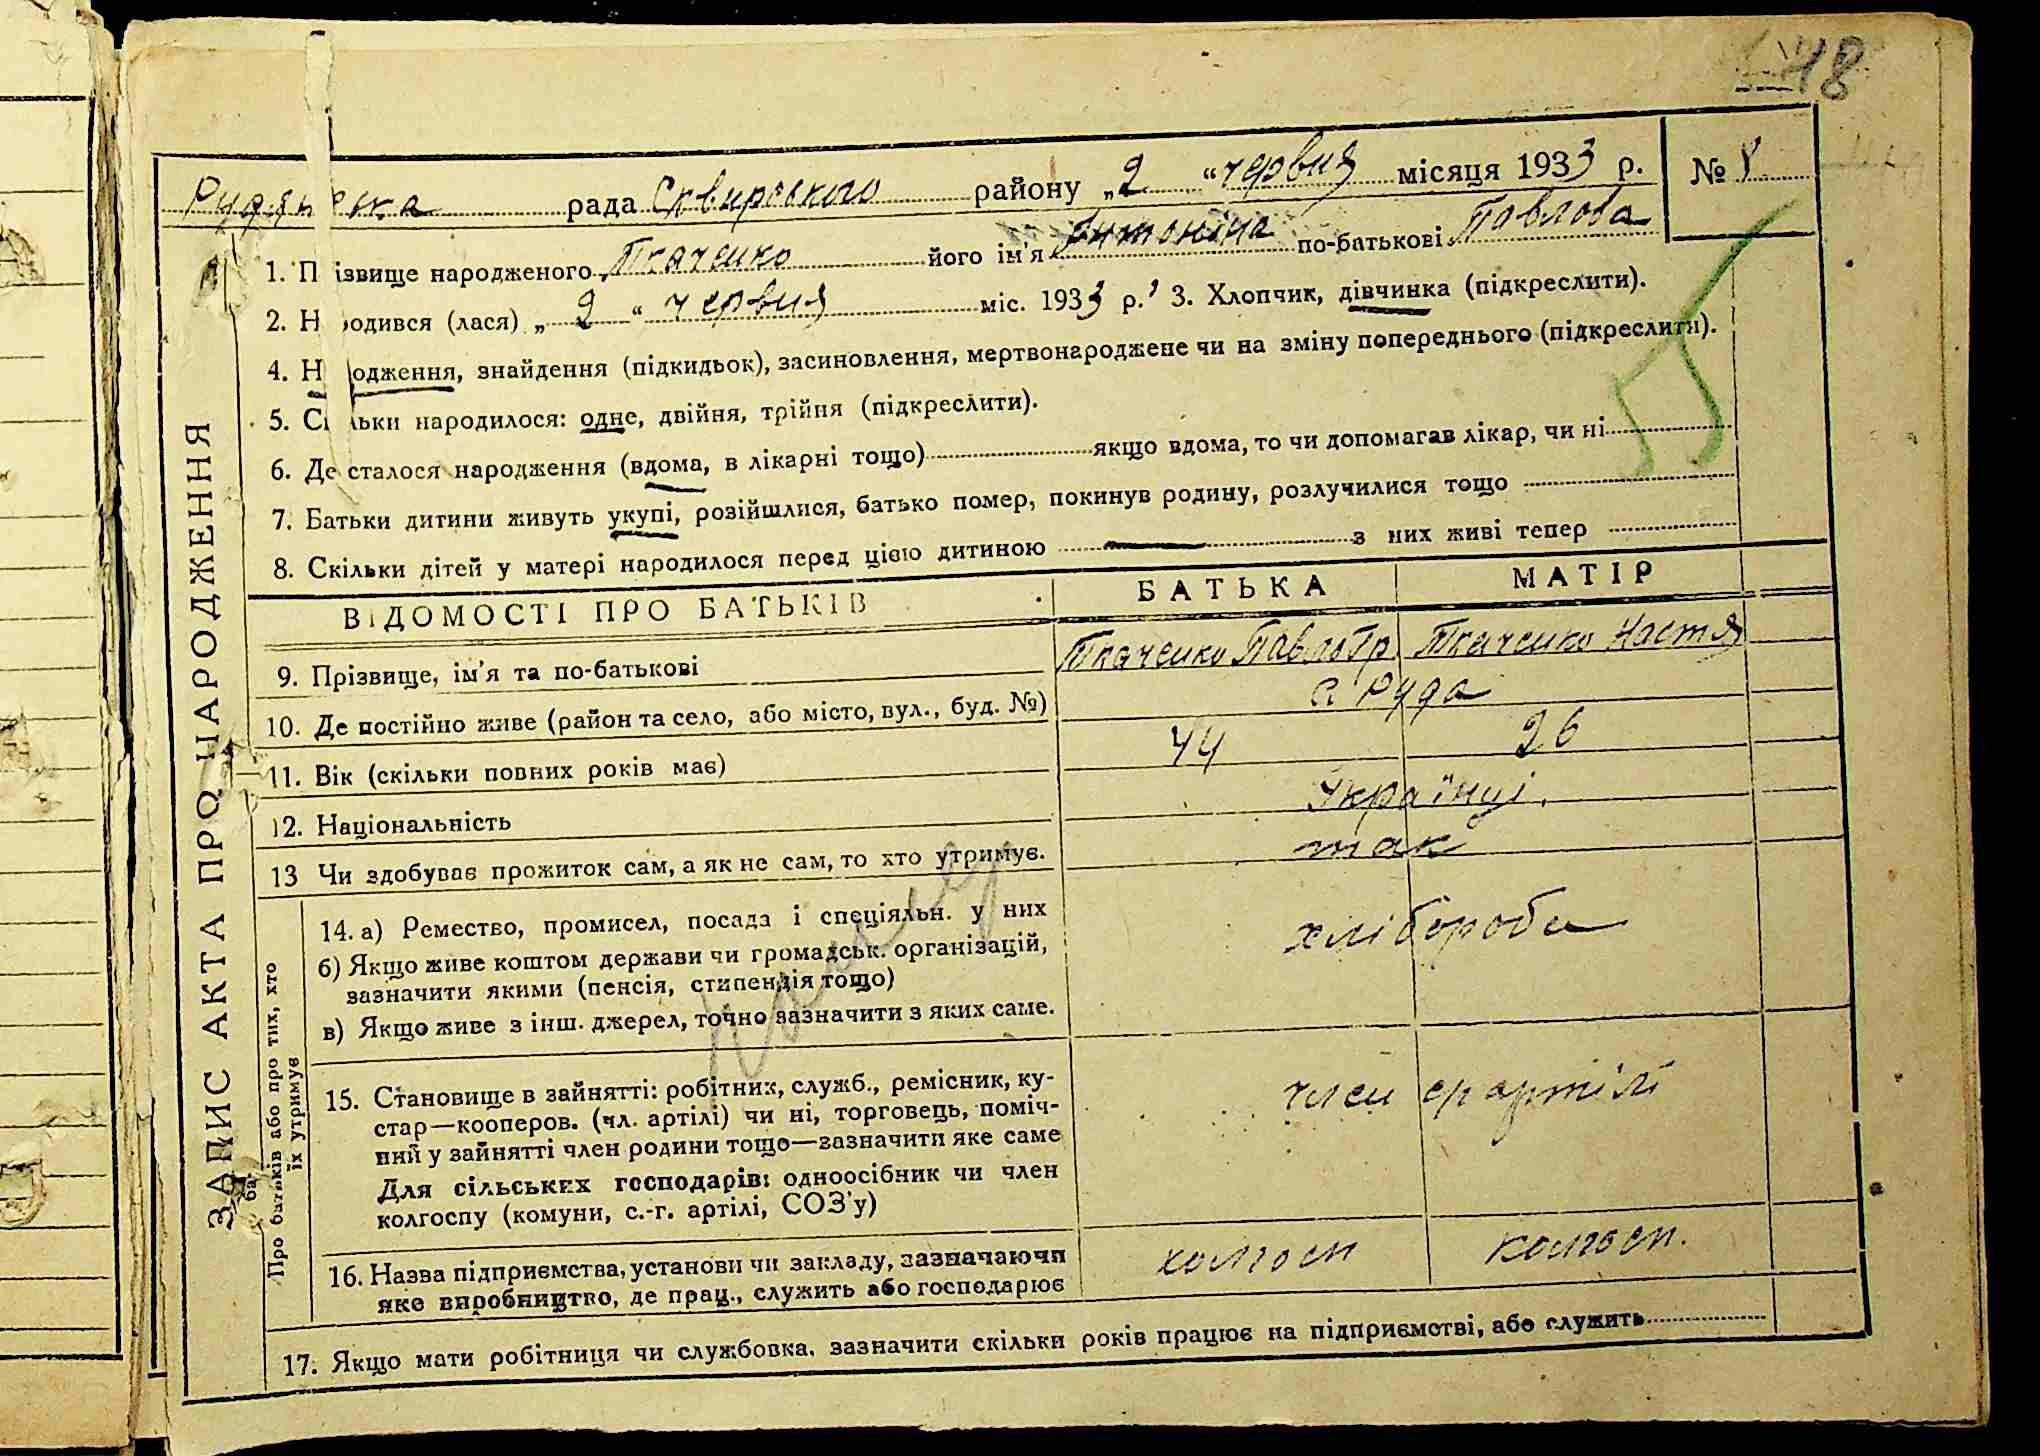 48
Рудянська рада Сквирського району „2“ червня місяця 1933 р. № 8
1. Прізвище народженого Ткаченко його ім'я Антоніна по-батькові Павлова
2. Народився (лася) „2“ червня міс. 1933 р. 3. Хлопчик, дівчинка (підкреслити).
4. Народження, знайдення (підкидьок), засиновлення, мертвонароджене чи на зміну попереднього (підкреслити).
5. Скільки народилося: одне, двійня, трійня (підкреслити).
6. Де сталося народження (вдома, в лікарні тощо) якщо вдома, то чи допомагав лікар, чи ні
7. Батьки дитини живуть укупі, розійшлися, батько помер, покинув родину, розлучилися тощо
8. Скільки дітей у матері народилося перед цією дитиною — з них живі тепер
ЗАПИС АКТА ПРО НАРОДЖЕННЯ
ВІДОМОСТІ ПРО БАТЬКІВ БАТЬКА МАТІР
9. Прізвище, ім'я та по-батькові Ткаченко Павло Гр. Ткаченко Настя
10. Де постійно живе (район та село, або місто, вул., буд. №) с Руда
11. Вік (скільки повних років має) 44 26
12. Національність Українці.
13 Чи здобуває прожиток сам, а як не сам, то хто утримує. так
Про батьків або про тих, хто
їх утримує
14. а) Ремество, промисел, посада і спеціяльн. у них хлібороби
б) Якщо живе коштом держави чи громадськ. організацій,
зазначити якими (пенсія, стипендія тощо)
в) Якщо живе з інш. джерел, точно зазначити з яких саме.
15. Становище в зайнятті: робітник, служб., ремісник, ку-
стар—кооперов. (чл. артілі) чи ні, торговець, поміч-
ний у зайнятті член родини тощо—зазначити яке саме
Для сільських господарів: одноосібник чи член
колгоспу (комуни, с.-г. артілі, СОЗ'у)
член артілі
16. Назва підприємства, установи чи закладу, зазначаючи
яке виробництво, де прац., служить або господарює
колгосп колгосп.
17. Якщо мати робітниця чи службовка, зазначити скільки років працює на підприємстві, або служить